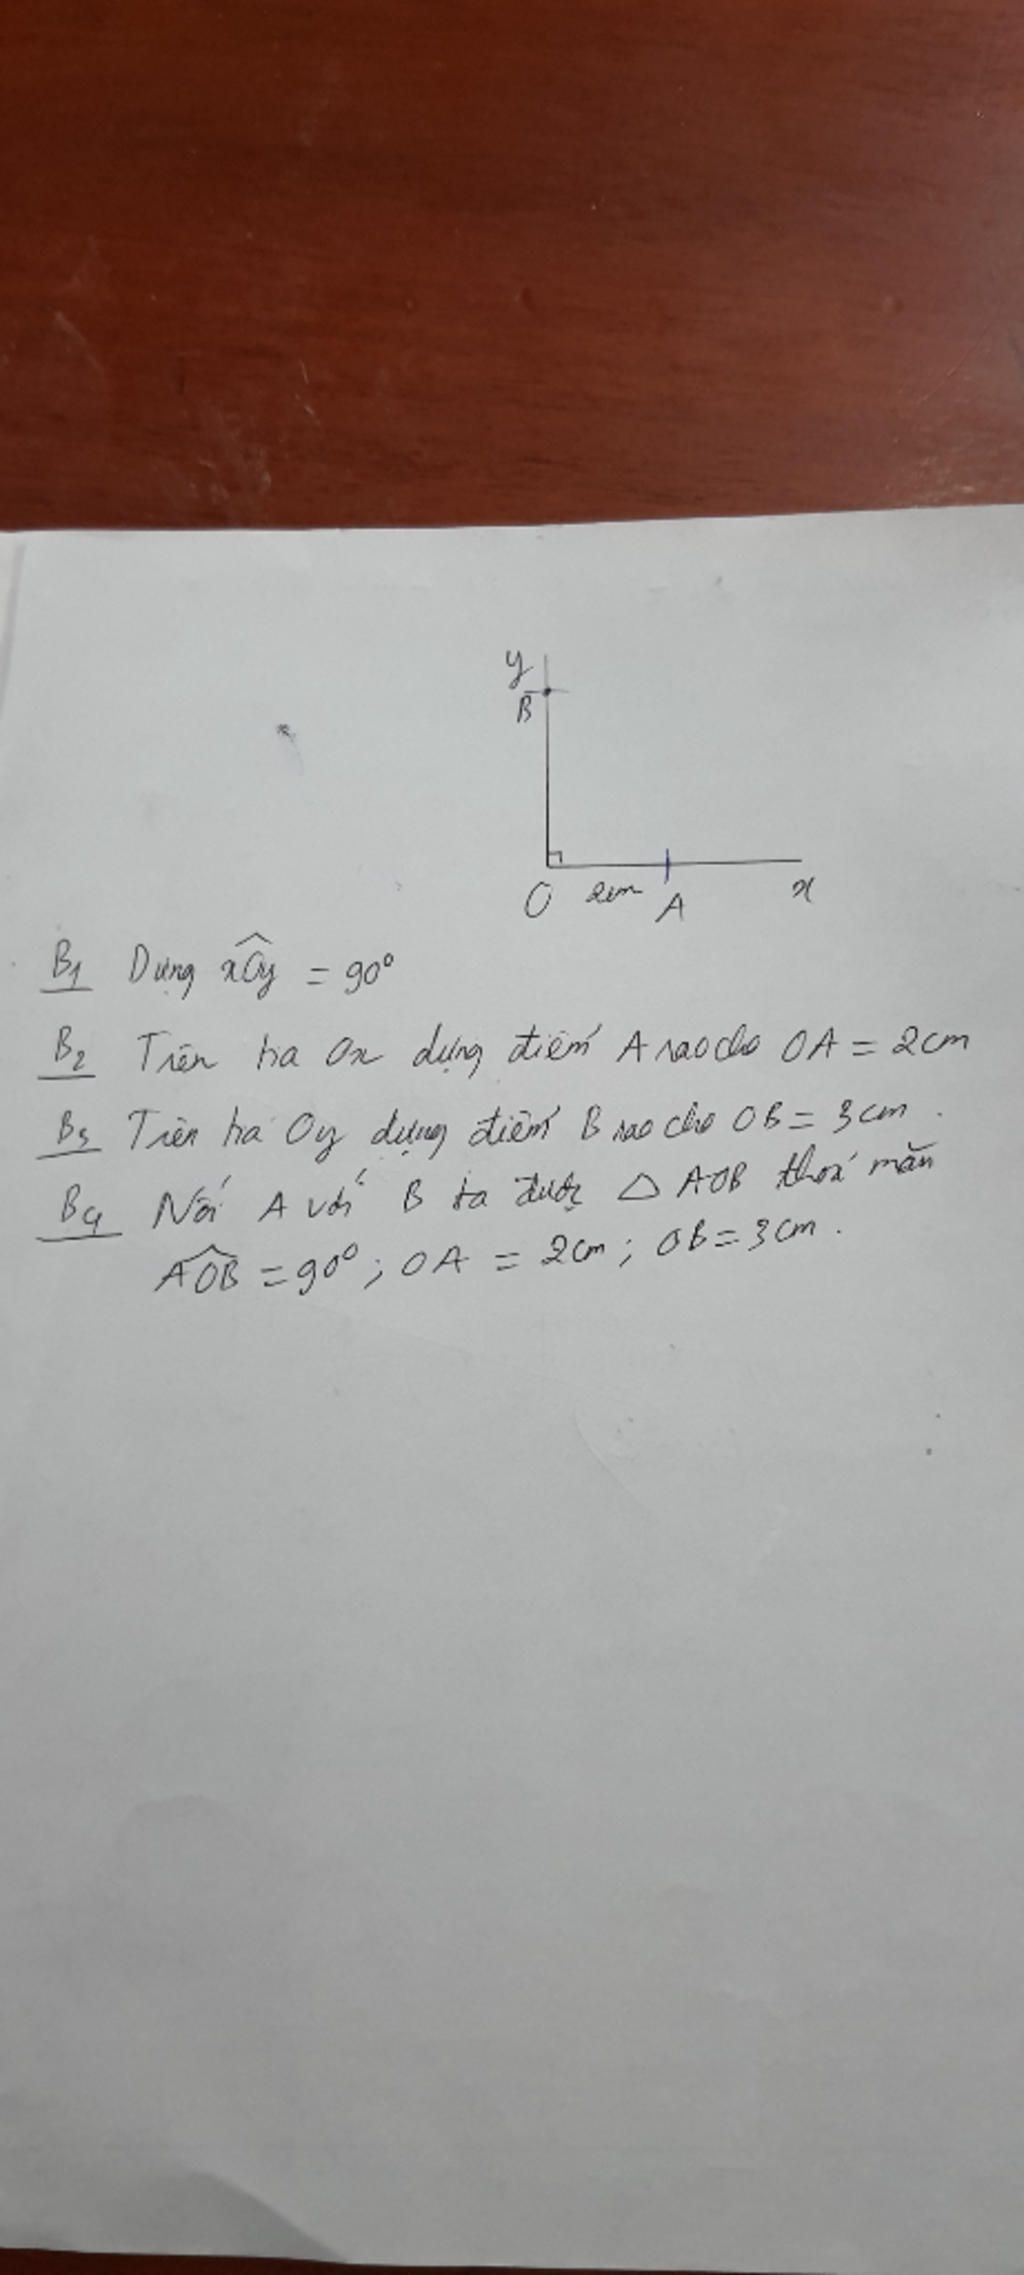 y
B
O 2cm A x
B1 Dựng xOy = 90°
B2 Trên tia Ox dựng điểm A sao cho OA = 2cm
B3 Trên tia Oy dựng điểm B sao cho OB = 3cm.
B4 Nối A với B ta được △ AOB thoả mãn
AOB = 90°; OA = 2cm; OB = 3cm.